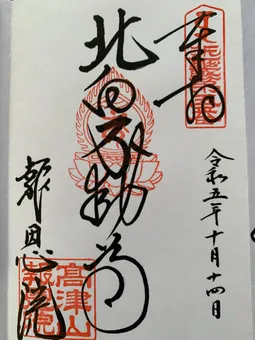 奉拝
令和五年十月十四日
北向不動尊
報恩院
高津山
報恩院